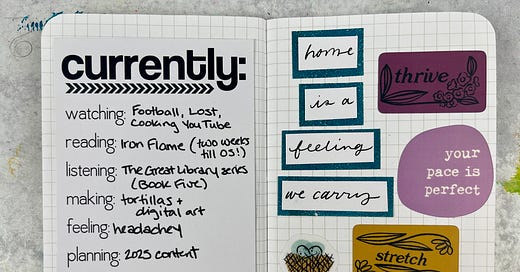 currently:
watching: Football, Lost,
Cooking YouTube
reading: Iron Flame (two weeks
till OS!)
listening: The Great Library series
(Book Five)
making: tortillas +
digital art
feeling: headachey
planning: 2025 content
home
is a
feeling
we carry
thrive
your
pace is
perfect
stretch